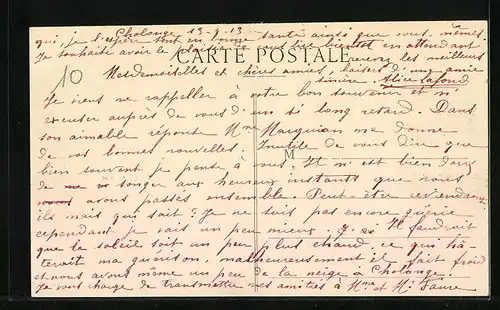 Cholonge 13-9-13
qui, je l'espère sont en bonne santé ainsi que vous mêmes.
Je souhaite avoir le plaisir de vous lire bientôt en attendant
CARTE POSTALE
recevez les meilleurs
10
Mesdemoiselles et chères amies, baisers d'une amie
sincère. Alice Lafond
Je viens me rappeller à votre bon souvenir et m'
excuser auprès de vous d'un si long retard. Dans
son aimable réponse Mme Marguian me donne
de vos bonnes nouvelles. Inutile de vous dire que
bien souvent je pense à vous. Il m'est bien doux
M
de songer aux heureux instants que nous
avons passés ensemble. Peut-être reviendront
ils mais qui sait? Je ne suis pas encore guérie
cependant je vais un peu mieux. Il faudrait
que le soleil soit un peu plus chaud ce qui hâ-
terait ma guérison, malheureusement il fait froid
et nous avons même un peu de la neige à Cholonge.
Je vous charge de transmettre mes amitiés à Mme et Mr Faure